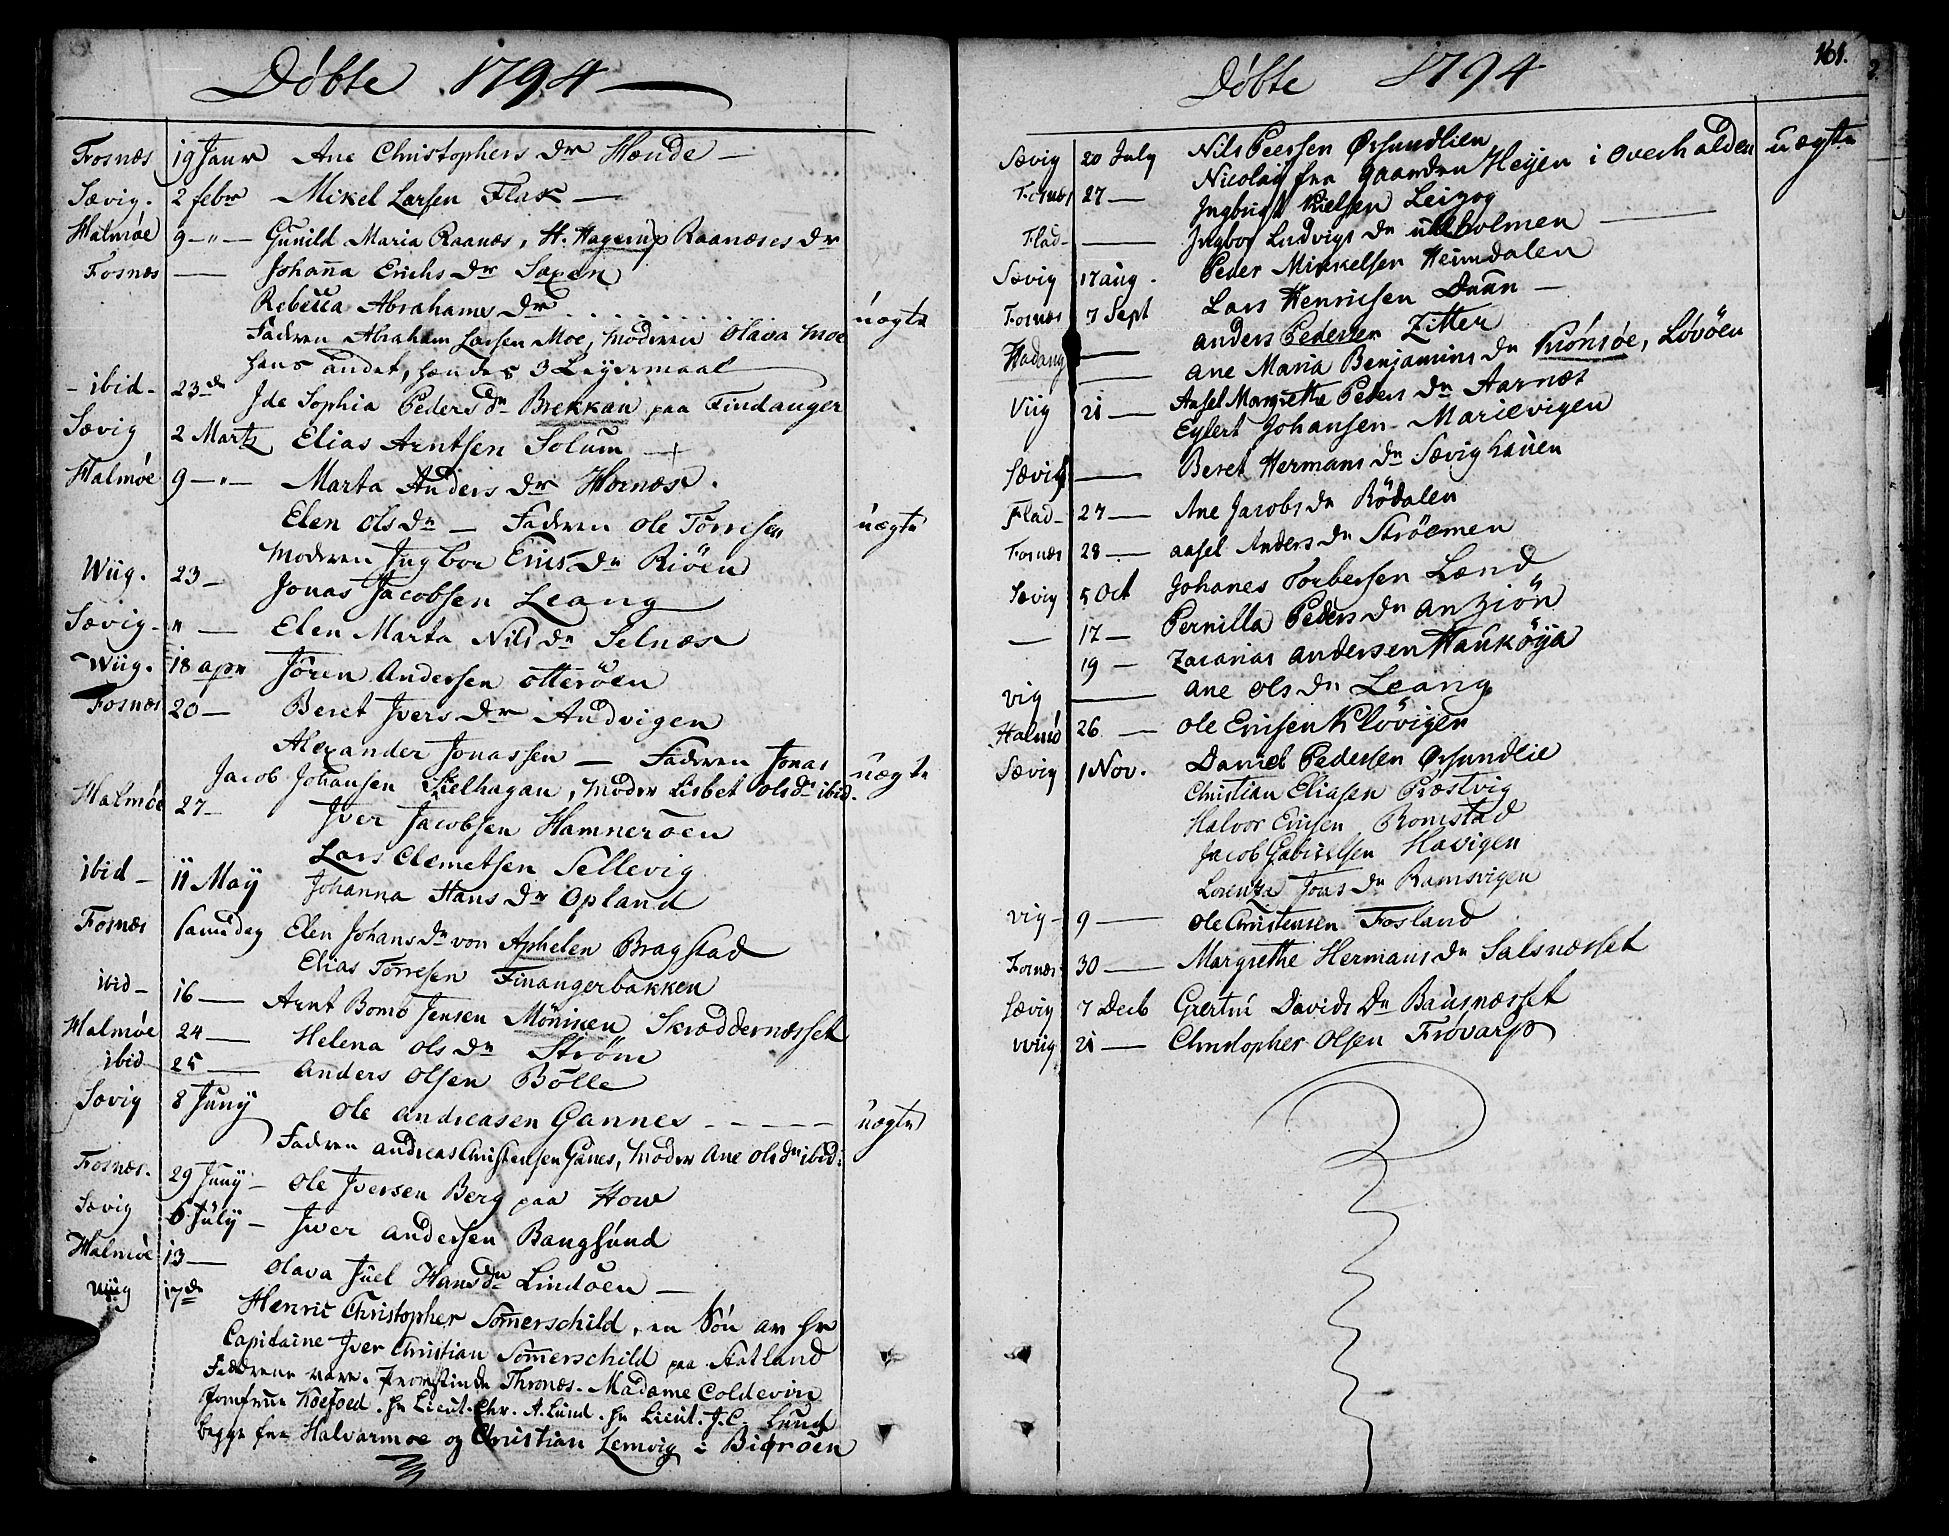 Døbte 1794
Fosnæs 19 Janr Ane Christophers Dr Hænde
Sævig. 2 febr Mikel Larsen Flak
Halmøe 9 -"- Gunild Maria Raanæs, H. Hagerup Raanæses Dr
Fosnæs Johana Erichs Dr Saxen
Rebecca Abrahams Dr uægte
Fadren Abraham Larsen Moe, Moderen Olava Moe
hans andet, hændes 3 Leyermaal
- ibid - 23de Ide Sophia Peders Dr Brekkan paa Findanger
Sævig 2 Martz Elias Arntsen Solum +
Halmøe 9 -"- Marta Anders Dr Hornæs.
Elen Ols Dr - Fadren Ole Torresen uægte
Modren Ingbor Erics Dr Riöen
Wiig. 23 - Jonas Jacobsen Leang
Sævig - " - Elen Marta Nils Dr Selnæs
Wiig. 18 apr Jören Andersen otteröen
Fosnæs 20 - Beret Ivers Dr Audvigen
Alexander Jonassen - Fadren Jonas
Jacob Johansen Kielhagan, Moder Lisbet Olsdr ibid. uægte
Halmøe 27 - Iver Jacobsen Hamneröen
Lars Clemetsen Sellevig
ibid - 11 May Johanna Hans Dr Opland
Fosnæs samme dag Elen Johans Dr von Aphelen Bragstad
Elias Torresen Finangerbakken
ibid - 16 - Arnt Bomb Jensen Möniken Skræddernæsset
Halmøe 24 - Helena Ols Dr Ström
ibid 25 - Anders Olsen Bölle
Sævig 8 Juny Ole Andreasen Gannes uægte
Fadren Andreas Christensen Ganes, Moder Ane Olsdr ibid:
Fosnæs. 29 Juny - Ole Iversen Berg paa How
Sævig 6 July - Iwer Andersen Bangsund
Halmøe 13 - Olava Juel Hansdr Lindöen
Wiig 17de Henric Christopher Somerschild, en Sön av Hr
Capitaine Iver Christian Somerschild paa Statland
Faddrene vare. Provstinde Thronæs. Madame Coldevin
Jomfrue Koefoed. Hr Lieut. Chr. A. Lund. Hr Lieut. J. C. Lund
begge fra Halvarmoe og Christian Lemvig i Bieröen
Døbte 1794
161.
Sævig 20 July Nils Peersen Ørsundlien
Fosnæs 27 - Nicolai fra gaarden Heyen i Overhalden uægte
Ingbrigt Nielsen Leizog
Flad - Ingbor Ludvigs Dr Ulleholmen
Sævig 17 aug. Peder Mikkelsen Heimdalen
Fosnæs 7 Sept Lars Henricsen Duun
Hadang Anders Pedersen Zitter
Ane Maria Benjamins Dr Krönsöe, Lövöen
Viig 21 - Aasel Margrethe Peders Dr Aarnæs
Eylert Johansen Marievigen
Sævig Beret Hermans Dr Sævig hauen
Flad - 27 - Ane Jacobs Dr Rödalen
Fosnæs 28 - Aasel Anders Dr Ströemen
Sævig 5 Oct Johanes Torbersen Lænd
17 - Pernilla Peders Dr Anziön
19 - Zacarias Andersen Hauköya
Vig Ane Ols Dr Leang
Halmö 26 - Ole Ericsen Klövigen
Sævig 1 Nov. Daniel Pedersen Ørsundlie
Christian Eliasen Præstvig
Halvor Ericsen Romstad
Jacob Gabrielsen Havigen
Lorenza Jons Dr Ramsvigen
Vig - 9 - Ole Christensen Fosland
Fosnæs 30 - Margrethe Hermans Dr Salsnæsset
Sævig 7 Decb Giertru Davids Dr Bausnæsset
Wiig 21 - Christopher Olsen Frövarp